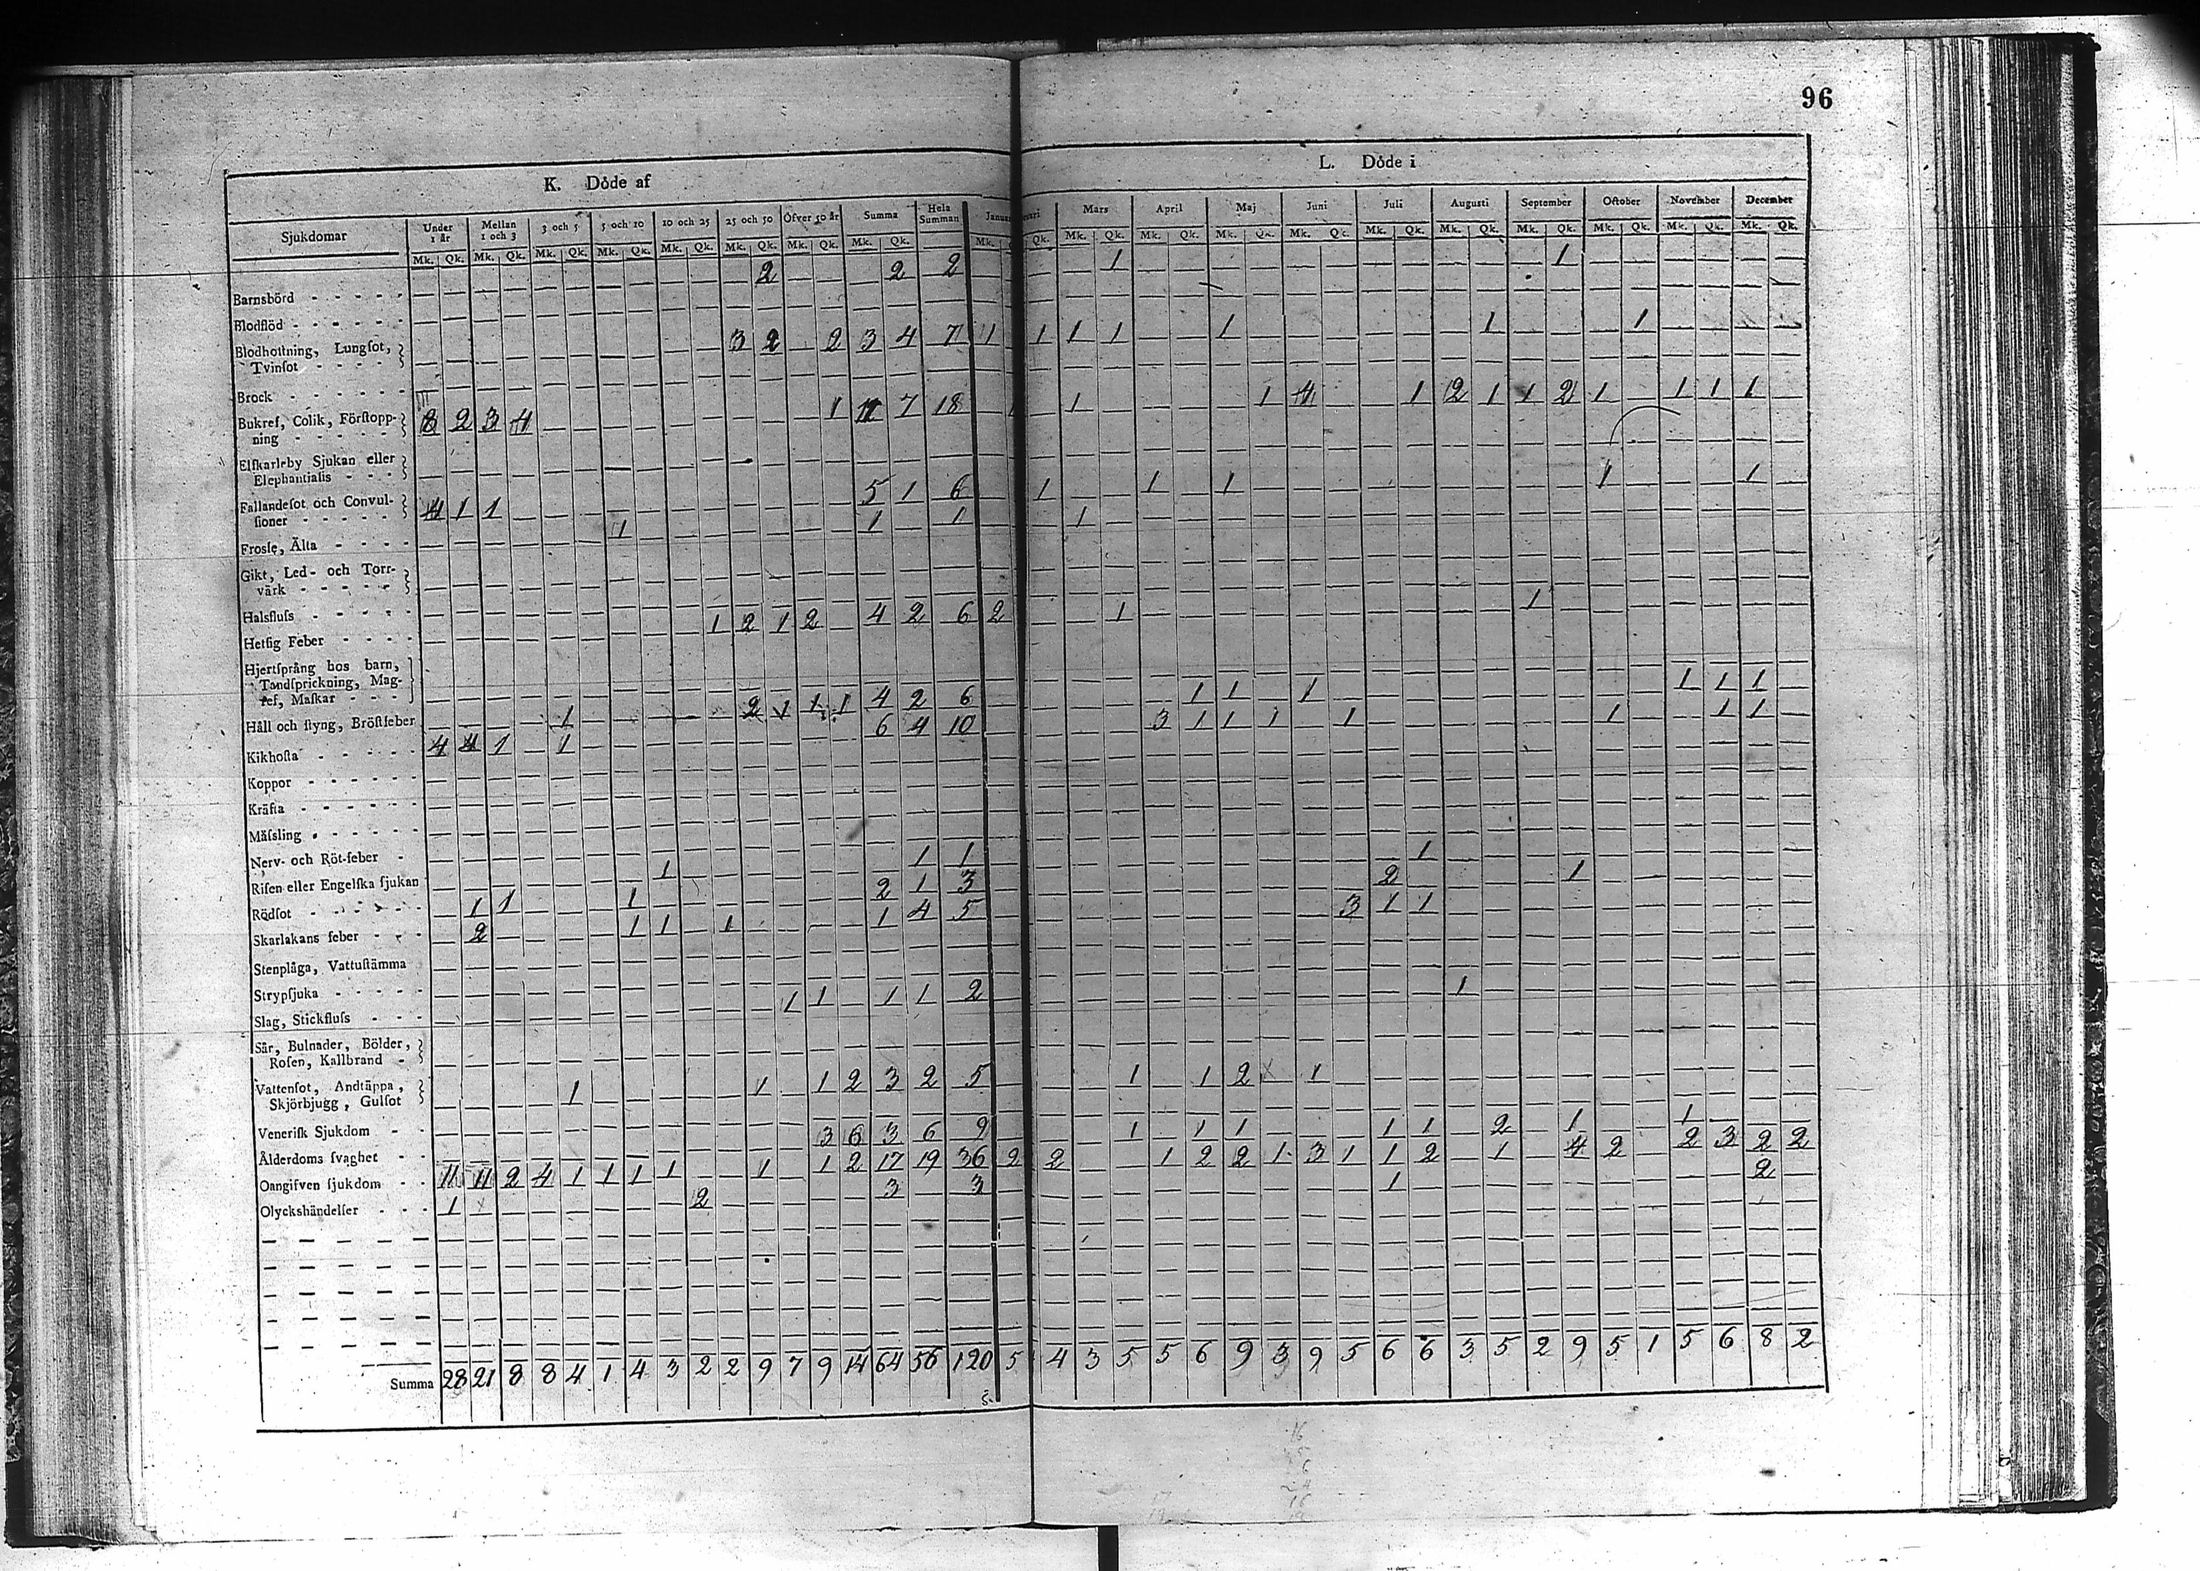 96
K. Döde af
L. Döde i
Sjukdomar
Under 1 år Mellan 1 och 3 3 och 5 5 och 10 10 och 25 25 och 50 Öfver 50 år Summa Hela Summan Januari Mars April Maj Juni Juli Augusti September October November December
Mk. Qk. Mk. Qk. Mk. Qk. Mk. Qk. Mk. Qk. Mk. Qk. Mk. Qk. Mk. Qk. Mk. Qk. Mk. Qk. Mk. Qk. Mk. Qk. Mk. Qk. Mk. Qk. Mk. Qk. Mk. Qk. Mk. Qk. Mk. Qk. Mk. Qk.
Barnsbörd 2 2 2 1 1
Blodflöd
Blodhoſtning, Lungſot,
Tvinſot 3 2 2 3 4 7 1 1 1 1 1 1 1
Brock
Bukref, Colik, Förſtopp-
ning 8 2 3 4 1 11 7 18 1 1 4 1 2 1 1 2 1 1 1 1
Elſkarleby Sjukan eller
Elephantiaſis
Fallandeſot och Convul-
ſioner 4 1 1 5 1 6 1 1 1 1 1
Froſſe, Älta 1 1 1 1
Gikt, Led- och Torr-
värk
Halsfluſs
Hetſig Feber 1 2 1 2 4 2 6 2 1 1
Hjertſprång hos barn,
Tandſprickning, Mag-
ref, Maſkar
Håll och ſtyng, Bröſtfeber 1 2 1 1 1 4 2 6 1 1 1 1 1 1
Kikhoſta 4 4 1 1 6 4 10 3 1 1 1 1 1 1 1
Koppor
Kräfta
Mäſsling
Nerv- och Röt-feber
Riſen eller Engelſka ſjukan 1 1 1 1
Rödſot 1 1 1 2 1 3 2 1
Skarlakans feber 2 1 1 1 1 4 5 3 1 1
Stenplåga, Vattuſtämma
Strypſjuka
Slag, Stickfluſs 1 1 1 1 2 1
Sår, Bulnader, Bölder,
Roſen, Kallbrand
Vattenſot, Andtäppa,
Skjörbjugg, Gulſot 1 1 1 2 3 2 5 1 1 2 1
Veneriſk Sjukdom
Ålderdoms ſvaghet 3 6 3 6 9 1 1 1 1 1 2 1 1
Oangifven ſjukdom 11 11 2 4 1 1 1 1 1 1 2 17 19 36 2 2 1 2 2 1 3 1 1 2 1 4 2 2 3 2 2
Olyckshändelſer 1 2 3 3 1 2
Summa 28 21 8 8 4 1 4 3 2 2 9 7 9 14 64 56 120 5 4 3 5 5 6 9 3 9 5 6 6 3 5 2 9 5 1 5 6 8 2